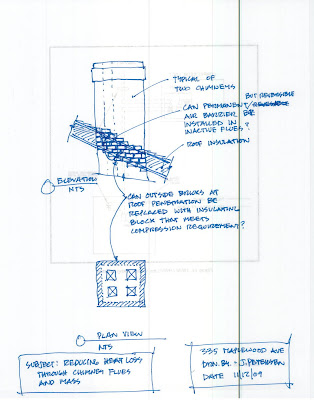 TYPICAL OF
TWO CHIMNEYS
BUT REVERSIBLE
CAN PERMANENT/
AIR BARRIER BE
INSTALLED IN
INACTIVE FLUES?
ROOF INSULATION
ELEVATION
NTS
CAN OUTSIDE BRICKS AT
ROOF PENETRATION BE
REPLACED WITH INSULATING
BLOCK THAT MEETS
COMPRESSION REQUIREMENT?
PLAN VIEW
NTS
SUBJECT: REDUCING HEAT LOSS
THROUGH CHIMNEY FLUES
AND MASS
335 MAPLEWOOD AVE
DRN. BY. - J. PETERSEN
DATE 11/12/09